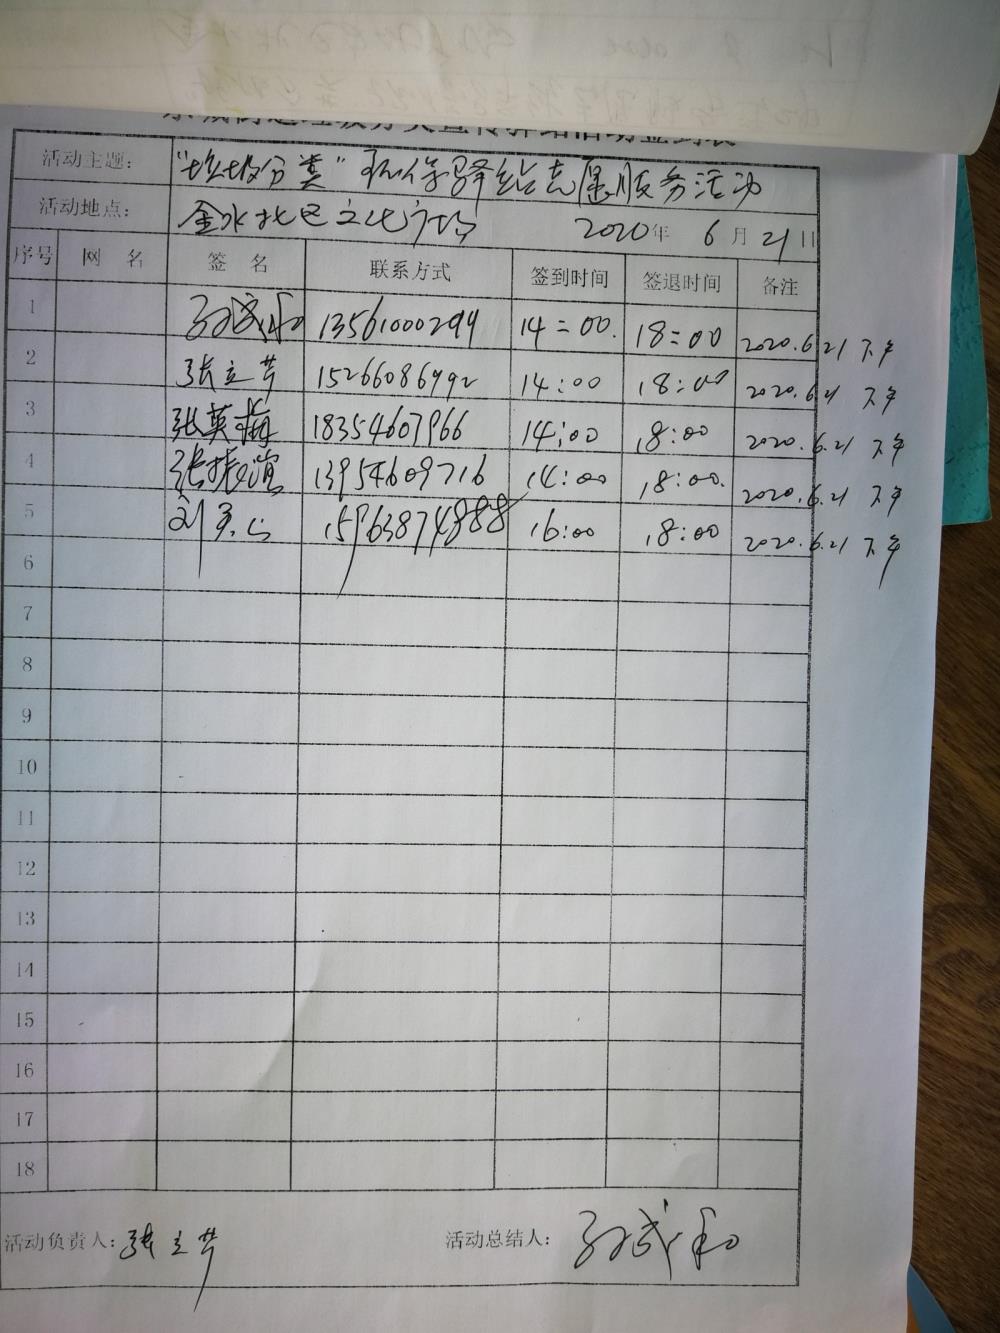 活动主题: "垃圾分类"环保驿站志愿服务活动
活动地点: 金水北区文化广场 2020年 6月21日
序号 网 名 签 名 联系方式 签到时间 签退时间 备注
1 孙成和 13561000294 14:00. 18:00 2020.6.21 下午
2 张立芹 15266086992 14:00 18:00 2020.6.21 下午
3 张英梅 18354607966 14:00 18:00 2020.6.21 下午
4 张振 13954609716 14:00 18:00. 2020.6.21 下午
5 15963874888 16:00 18:00 2020.6.21 下午
6
7
8
9
10
11
12
13
14
15
16
17
18
活动负责人: 张立芹 活动总结人: 孙成和